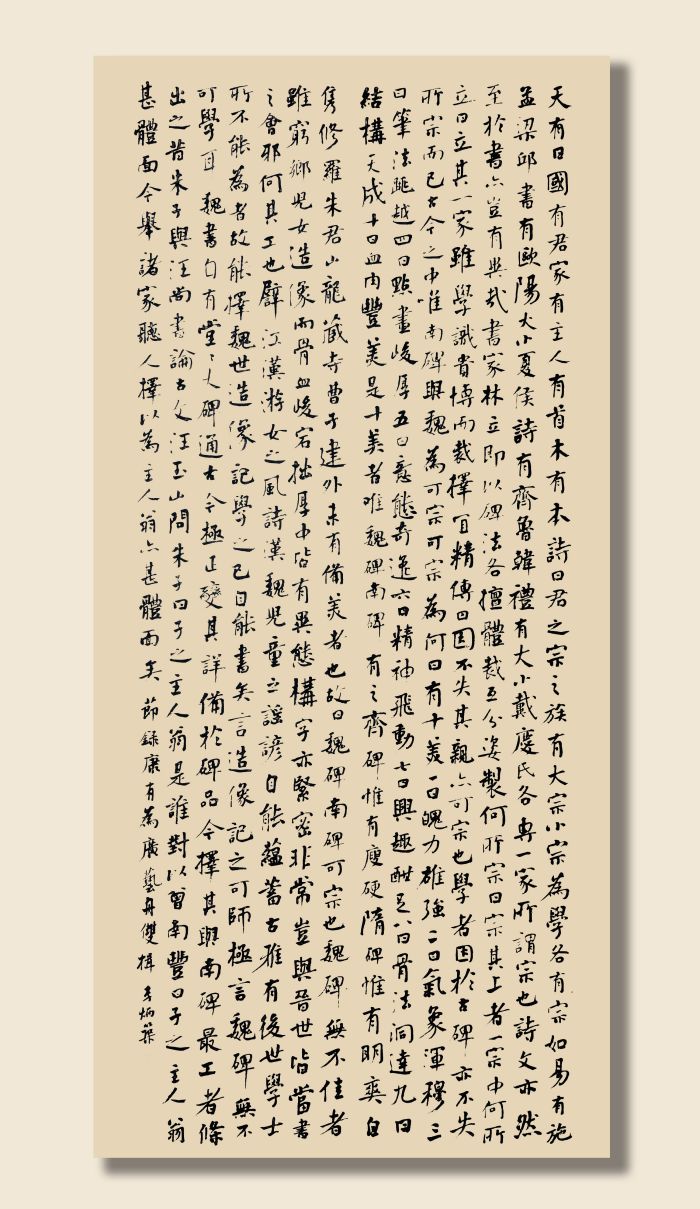 天有日國有君家有主人有首木有本詩曰君之宗之族有大宗小宗為學各有宗如易有施
孟梁邱書有歐陽大小夏侯詩有齊魯韓禮有大小戴慶氏各專一家所謂宗也詩文亦然
至於書亦豈有異哉書家林立即以碑法各擅體裁互分姿製何所宗曰宗其上者一宗中何所
立曰立其一家雖學識貴博而裁擇宜精傳曰因不失其親亦可宗也學者因於古碑亦不失
所宗而已古今之中唯南碑與魏為可宗可宗為何曰有十美一曰魄力雄強二曰氣象渾穆三
曰筆法跳越四曰點畫峻厚五曰意態奇逸六曰精神飛動七曰興趣酣足八曰骨法洞達九曰
結構天成十曰血肉豐美是十美者唯魏碑南碑有之齊碑惟有瘦硬隋碑惟有明爽自
雋修羅朱君山龍藏寺曹子建外未有備美者也故曰魏碑南碑可宗也魏碑無不佳者
雖窮鄉兒女造像而骨血峻宕拙厚中皆有異態構字亦緊密非常豈與晉世皆當書
之會邪何其工也譬江漢游女之風詩漢魏兒童之謠諺自能蘊蓄古雅有後世學士
所不能為者故能擇魏世造像記學之已自能書矣言造像記之可師極言魏碑無不
可學耳魏書自有堂堂大碑通古今極正變其詳備於碑品今擇其與南碑最工者條
出之昔朱子與汪尚書論古文汪玉山問朱子曰子之主人翁是誰對以曾南豐曰子之主人翁
甚體面今舉諸家聽人擇以為主人翁亦甚體面矣節錄康有為廣藝舟雙楫 炳